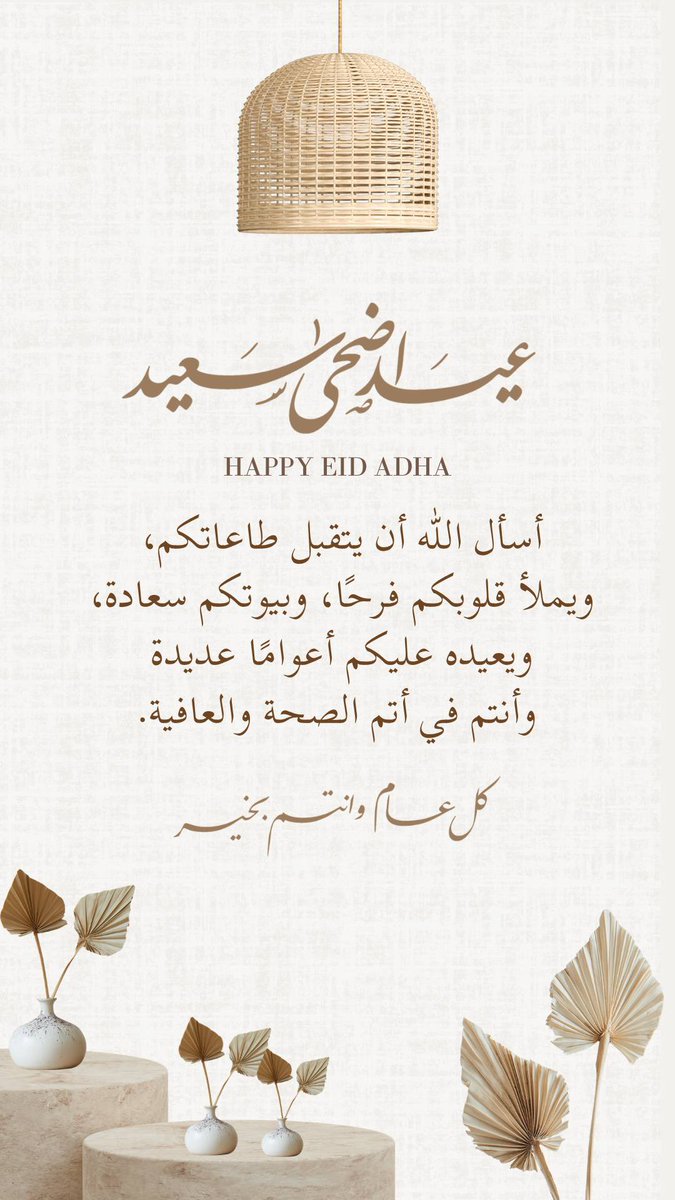 عيد اضحى سعيد
HAPPY EID ADHA
أسأل الله أن يتقبل طاعاتكم،
ويملأ قلوبكم فرحًا، وبيوتكم سعادة،
ويعيده عليكم أعوامًا عديدة
وأنتم في أتم الصحة والعافية.
كل عام وانتم بخير